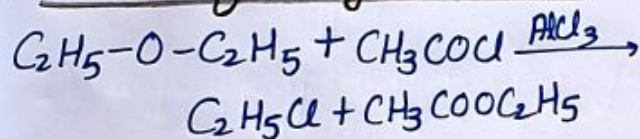 C₂H₅-O-C₂H₅ + CH₃COCl AlCl₃→
C₂H₅Cl + CH₃COOC₂H₅